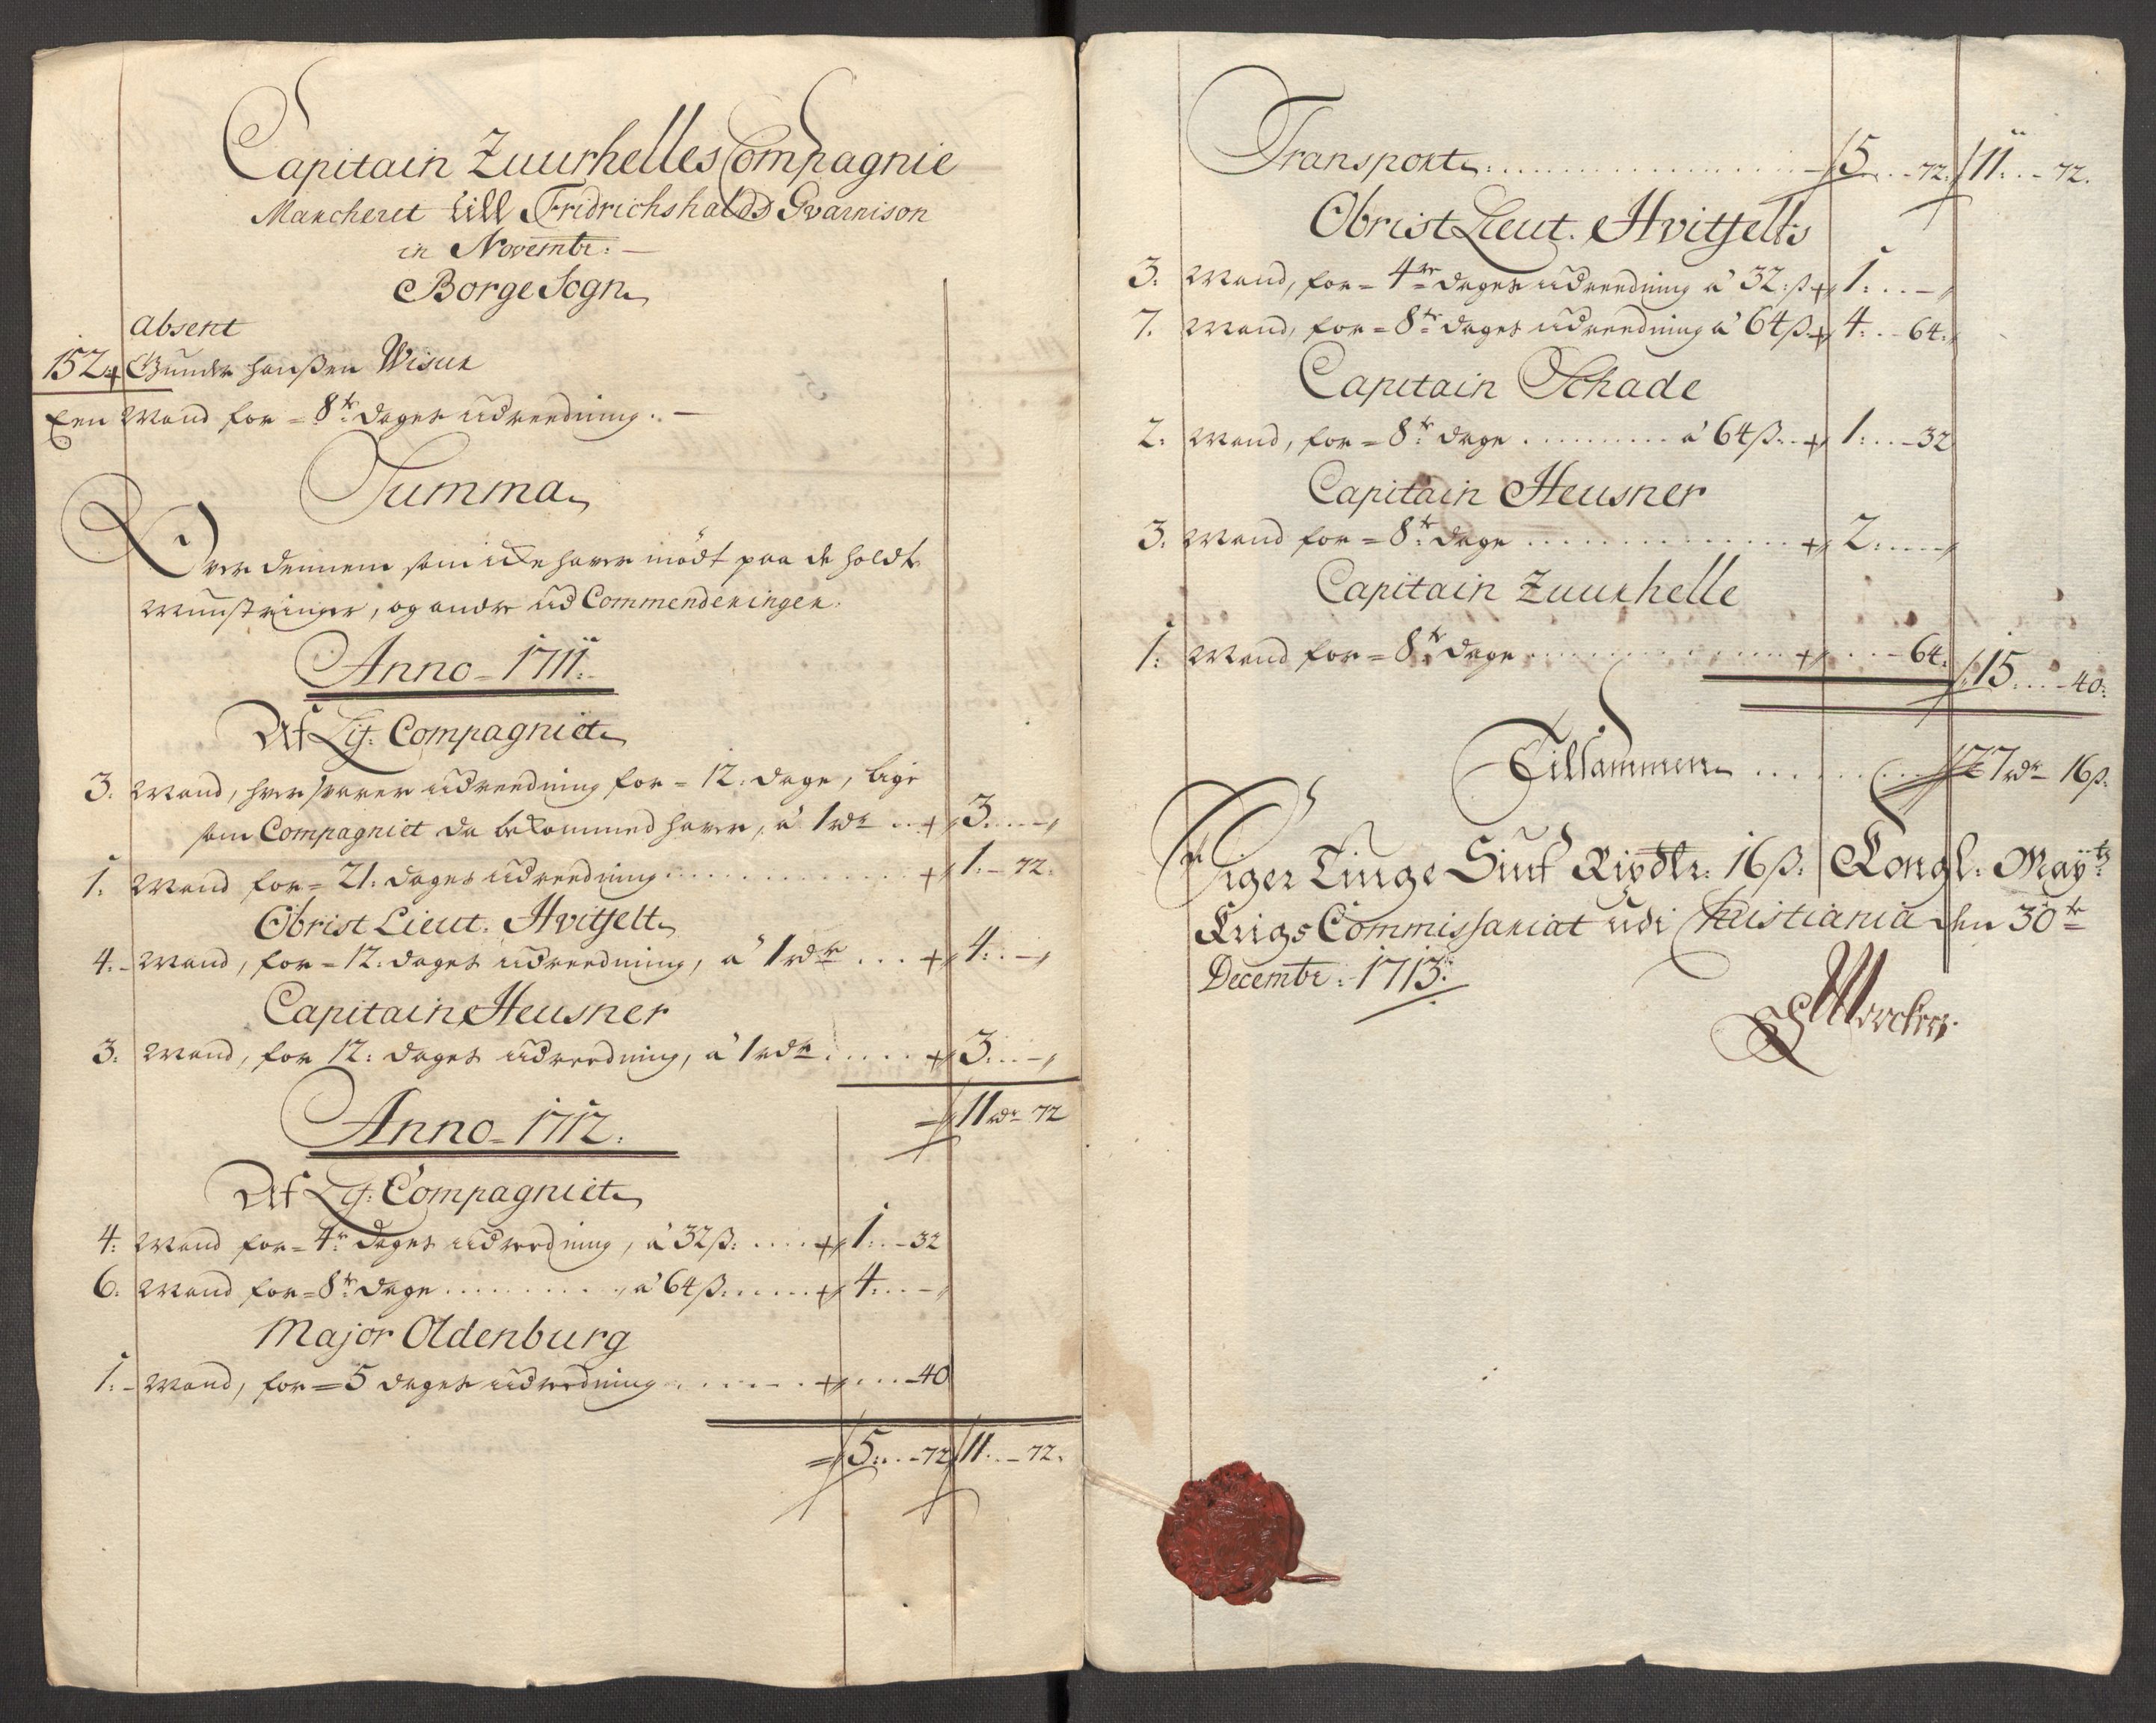 Capitain Zuurhelles Compagnie
Marcheret till Fridrichshalds Gvarnison
in Novembr:
Borge Sogn
Absent
152 Gunder Hanßen Wisur
Een Mand for = 8te dages udreedning.
Summa
Over dennem som icke haver mödt paa de holdte
Munstringer, og andre ud Commenderinger.
Anno 1711.
Af Lif: Compagniet
3. Mand, hver svarer udreedning for = 12: dage, lige
som Compagniet da bekommed haver, á 1 rdr .. 3...-
1. Mand for = 21: dages udreedning ..... 1.- 72.
Obrist Lieut. Hvitfelt
4.- Mand, for = 12: dages udreedning, á 1 rdr ... 4:..-
Capitain Heusner
3: Mand, for 12: dages udreedning, á 1 rdr ..... 3...-
11 rdr 72
Anno 1712.
Af Lif: Compagniet
4: Mand for = 4re dages udreedning, á 32 ß: .... 1:..-32
6: Mand for = 8te dage ......... á 64 ß ..... 4:..-
Major Oldenburg
1.- Mand, for = 5 dages udreedning ...... 40
5:...72 11..-72.
Transport ..... 5...-72. 11:..-72.
Obrist Lieut. Hvitfelts
3. Mand, for = 4re dages udreedning á 32: ß 1:..-
7. Mand, for = 8te dages udreedning á 64 ß 4:..-64:
Capitain Schade
2: Mand, for = 8te dage ......... á 64 ß.. 1:...-32
Capitain Heusner
3. Mand for = 8te dage ..... 2:....
Capitain Zuurhelle
1: Mand for = 8te dage ..... 64. 15...-40:
Tillsammen ...... 27 rdr 16 ß.
Siger Tiuge Siuf Rixdlr: 16 ß. Kongl: Mayts
Krigs Commissariat udi Christiania den 30te
Decembr: 1713.